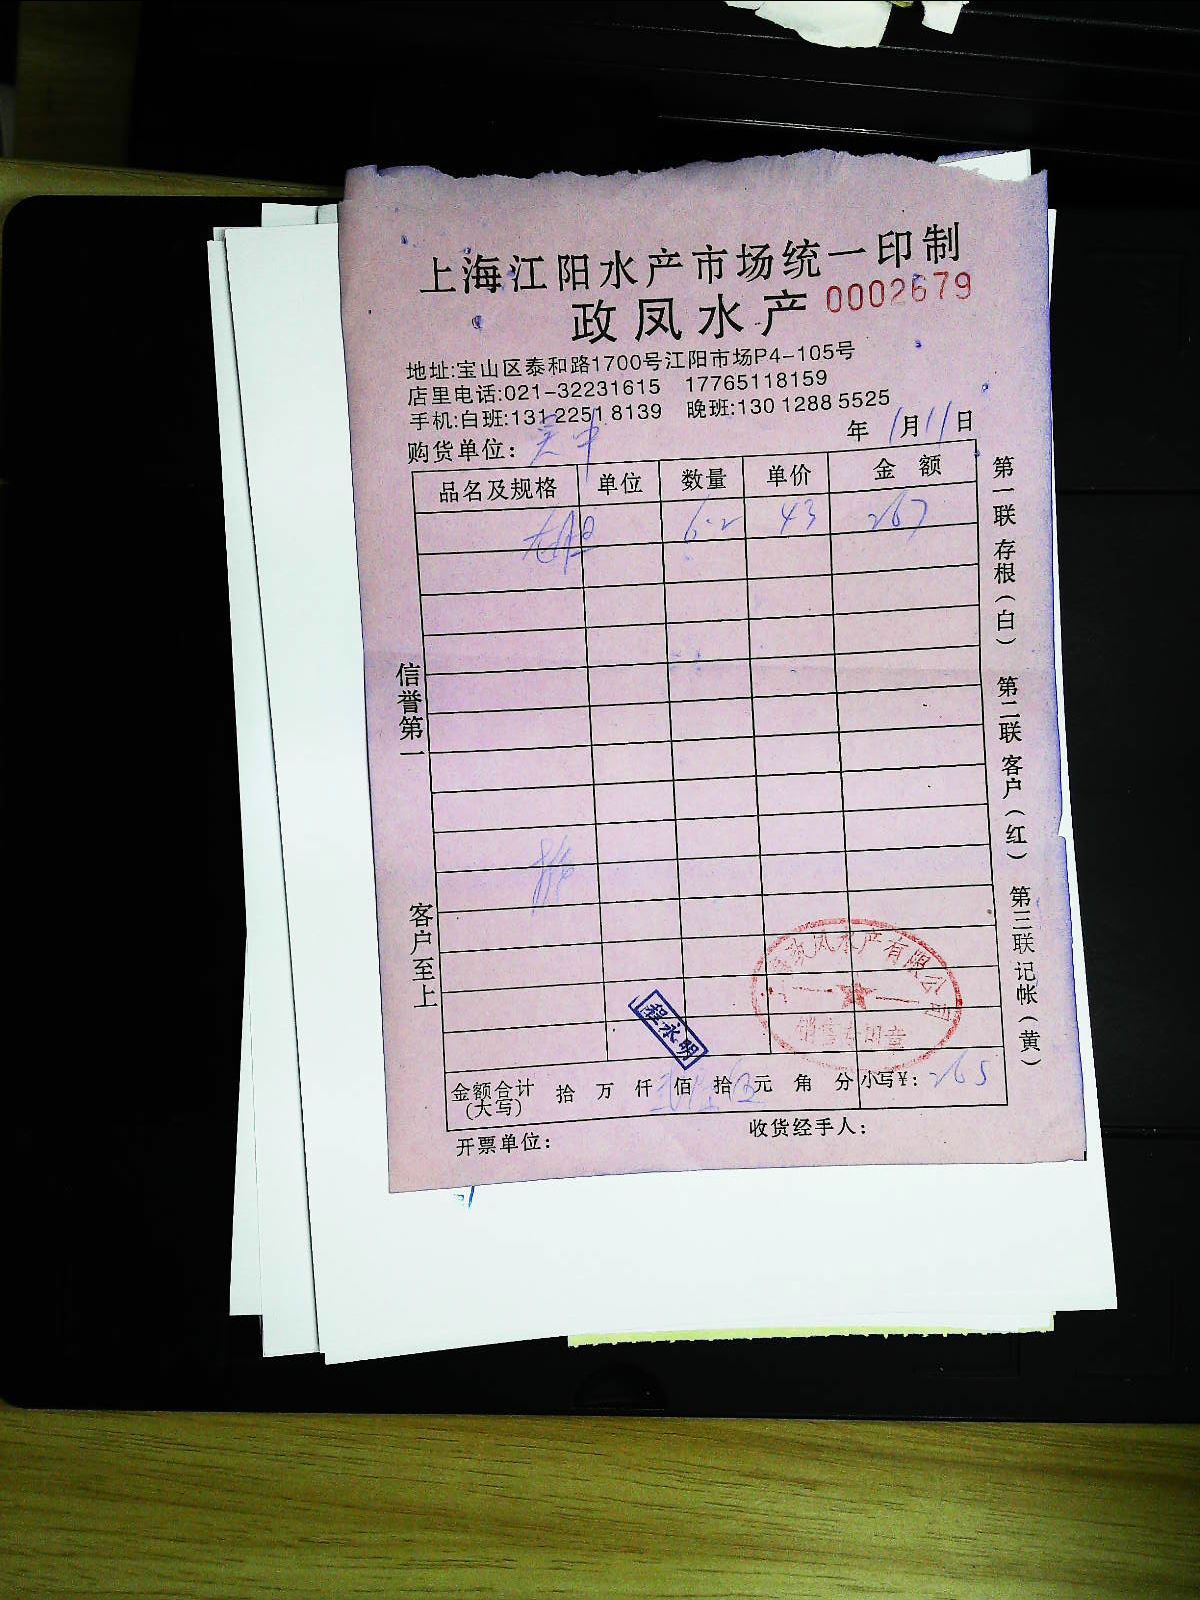 上海江阳水产市场统一印制
政凤水产 0002679
地址:宝山区泰和路1700号江阳市场P4-105号
店里电话:021-32231615 17765118159
手机:白班:131 2251 8139 晚班:130 1288 5525
购货单位: 年 1月11日
品名及规格 单位 数量 单价 金 额
6.2 43 267
第一联 存根(白) 第二联 客户(红) 第三联 记帐(黄)
信誉第一
客户至上
政凤水产有限公司
销售专用章
程永明
金额合计(大写) 拾 万 仟 佰 拾 元 角 分 小写¥: 265
开票单位: 收货经手人: